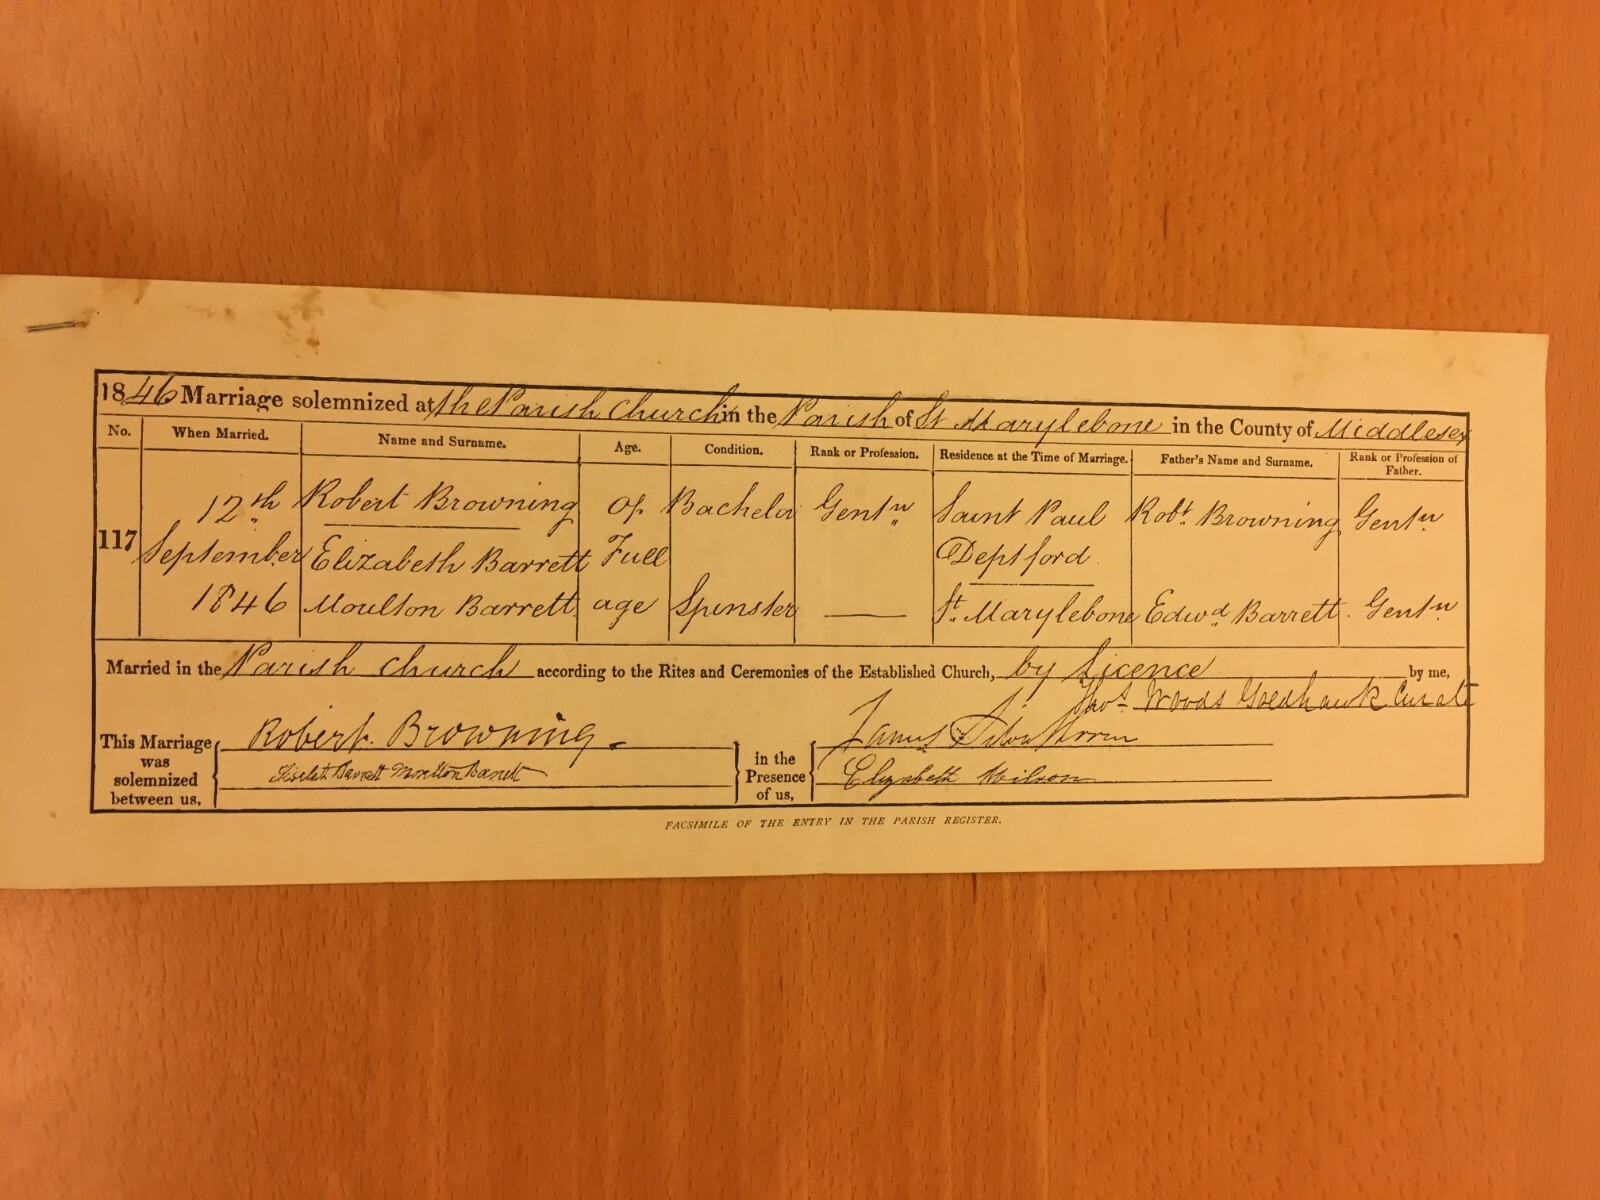 1846 Marriage solemnized at the Parish Church in the Parish of St Marylebone in the County of Middlesex
No. When Married. Name and Surname. Age. Condition. Rank or Profession. Residence at the Time of Marriage. Father's Name and Surname. Rank or Profession of Father.
12th Robert Browning of Bachelor Gentn Saint Paul Robt. Browning Gentn
117 September Elizabeth Barrett Full Deptford
1846 Moulton Barrett age Spinster St. Marylebone Edwd Barrett. Gentn
Married in the Parish Church according to the Rites and Ceremonies of the Established Church, by Licence by me,
Thos. Woods Goldhawk Curate
This Marriage was solemnized between us, Robert Browning. in the Presence of us, James
Elizabeth Barrett Moulton Barrett Elizabeth Wilson
FACSIMILE OF THE ENTRY IN THE PARISH REGISTER.